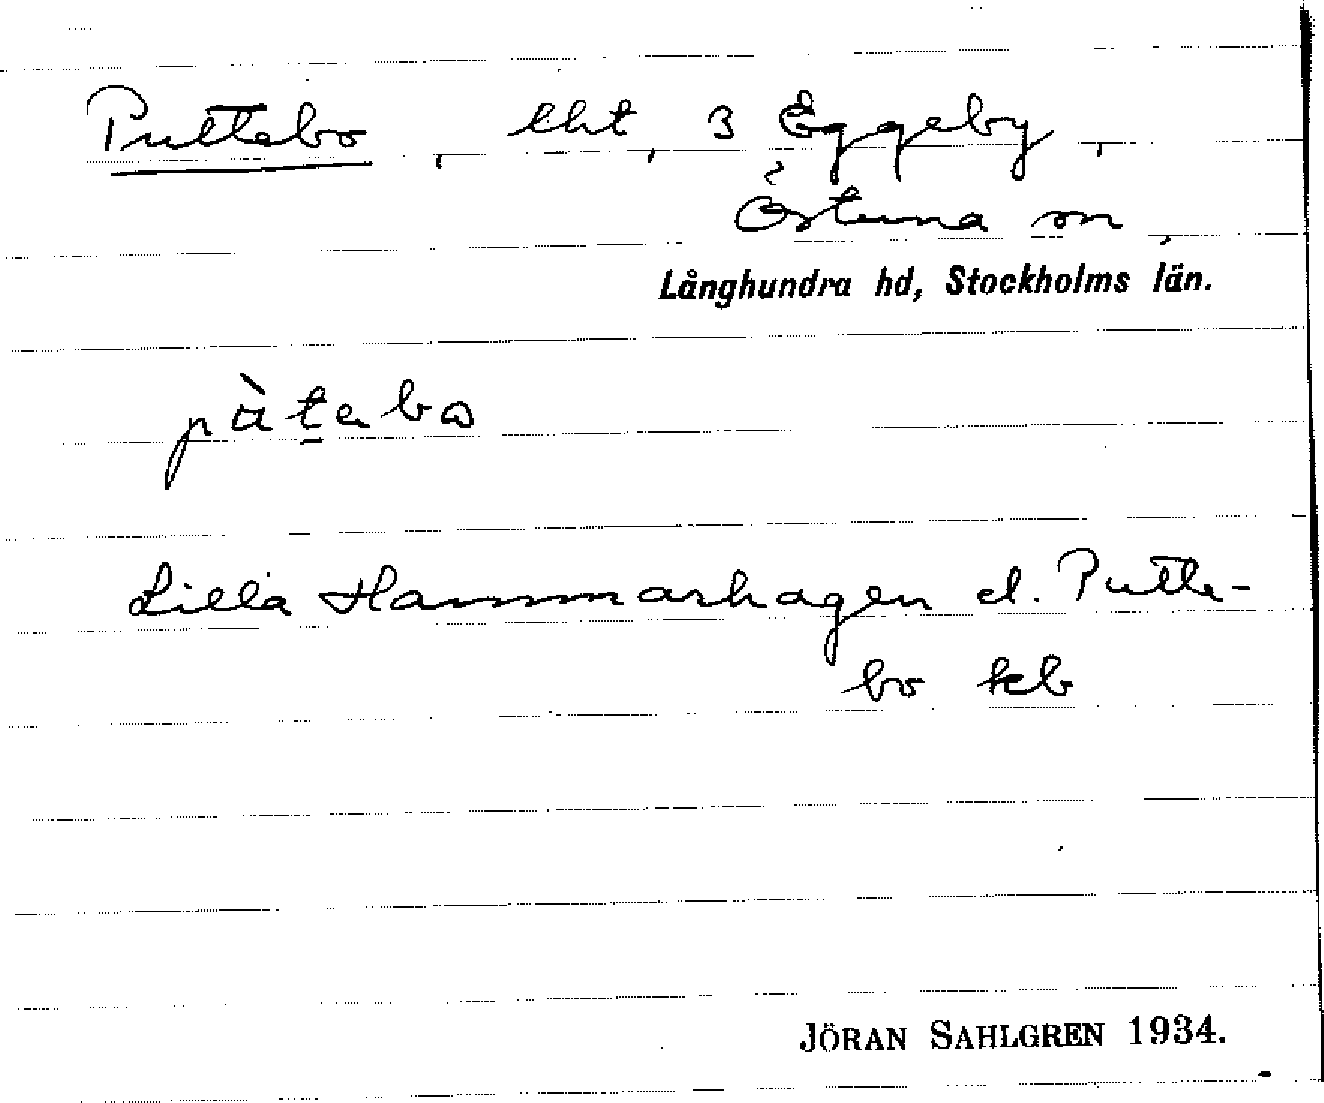 Puttebo, lht, 3 Eggeby,
Östuna sn,
Långhundra hd, Stockholms län.
pàt̲ebω
Lilla Hammarhagen el. Putte-
bo kb
JÖRAN SAHLGREN 1934.